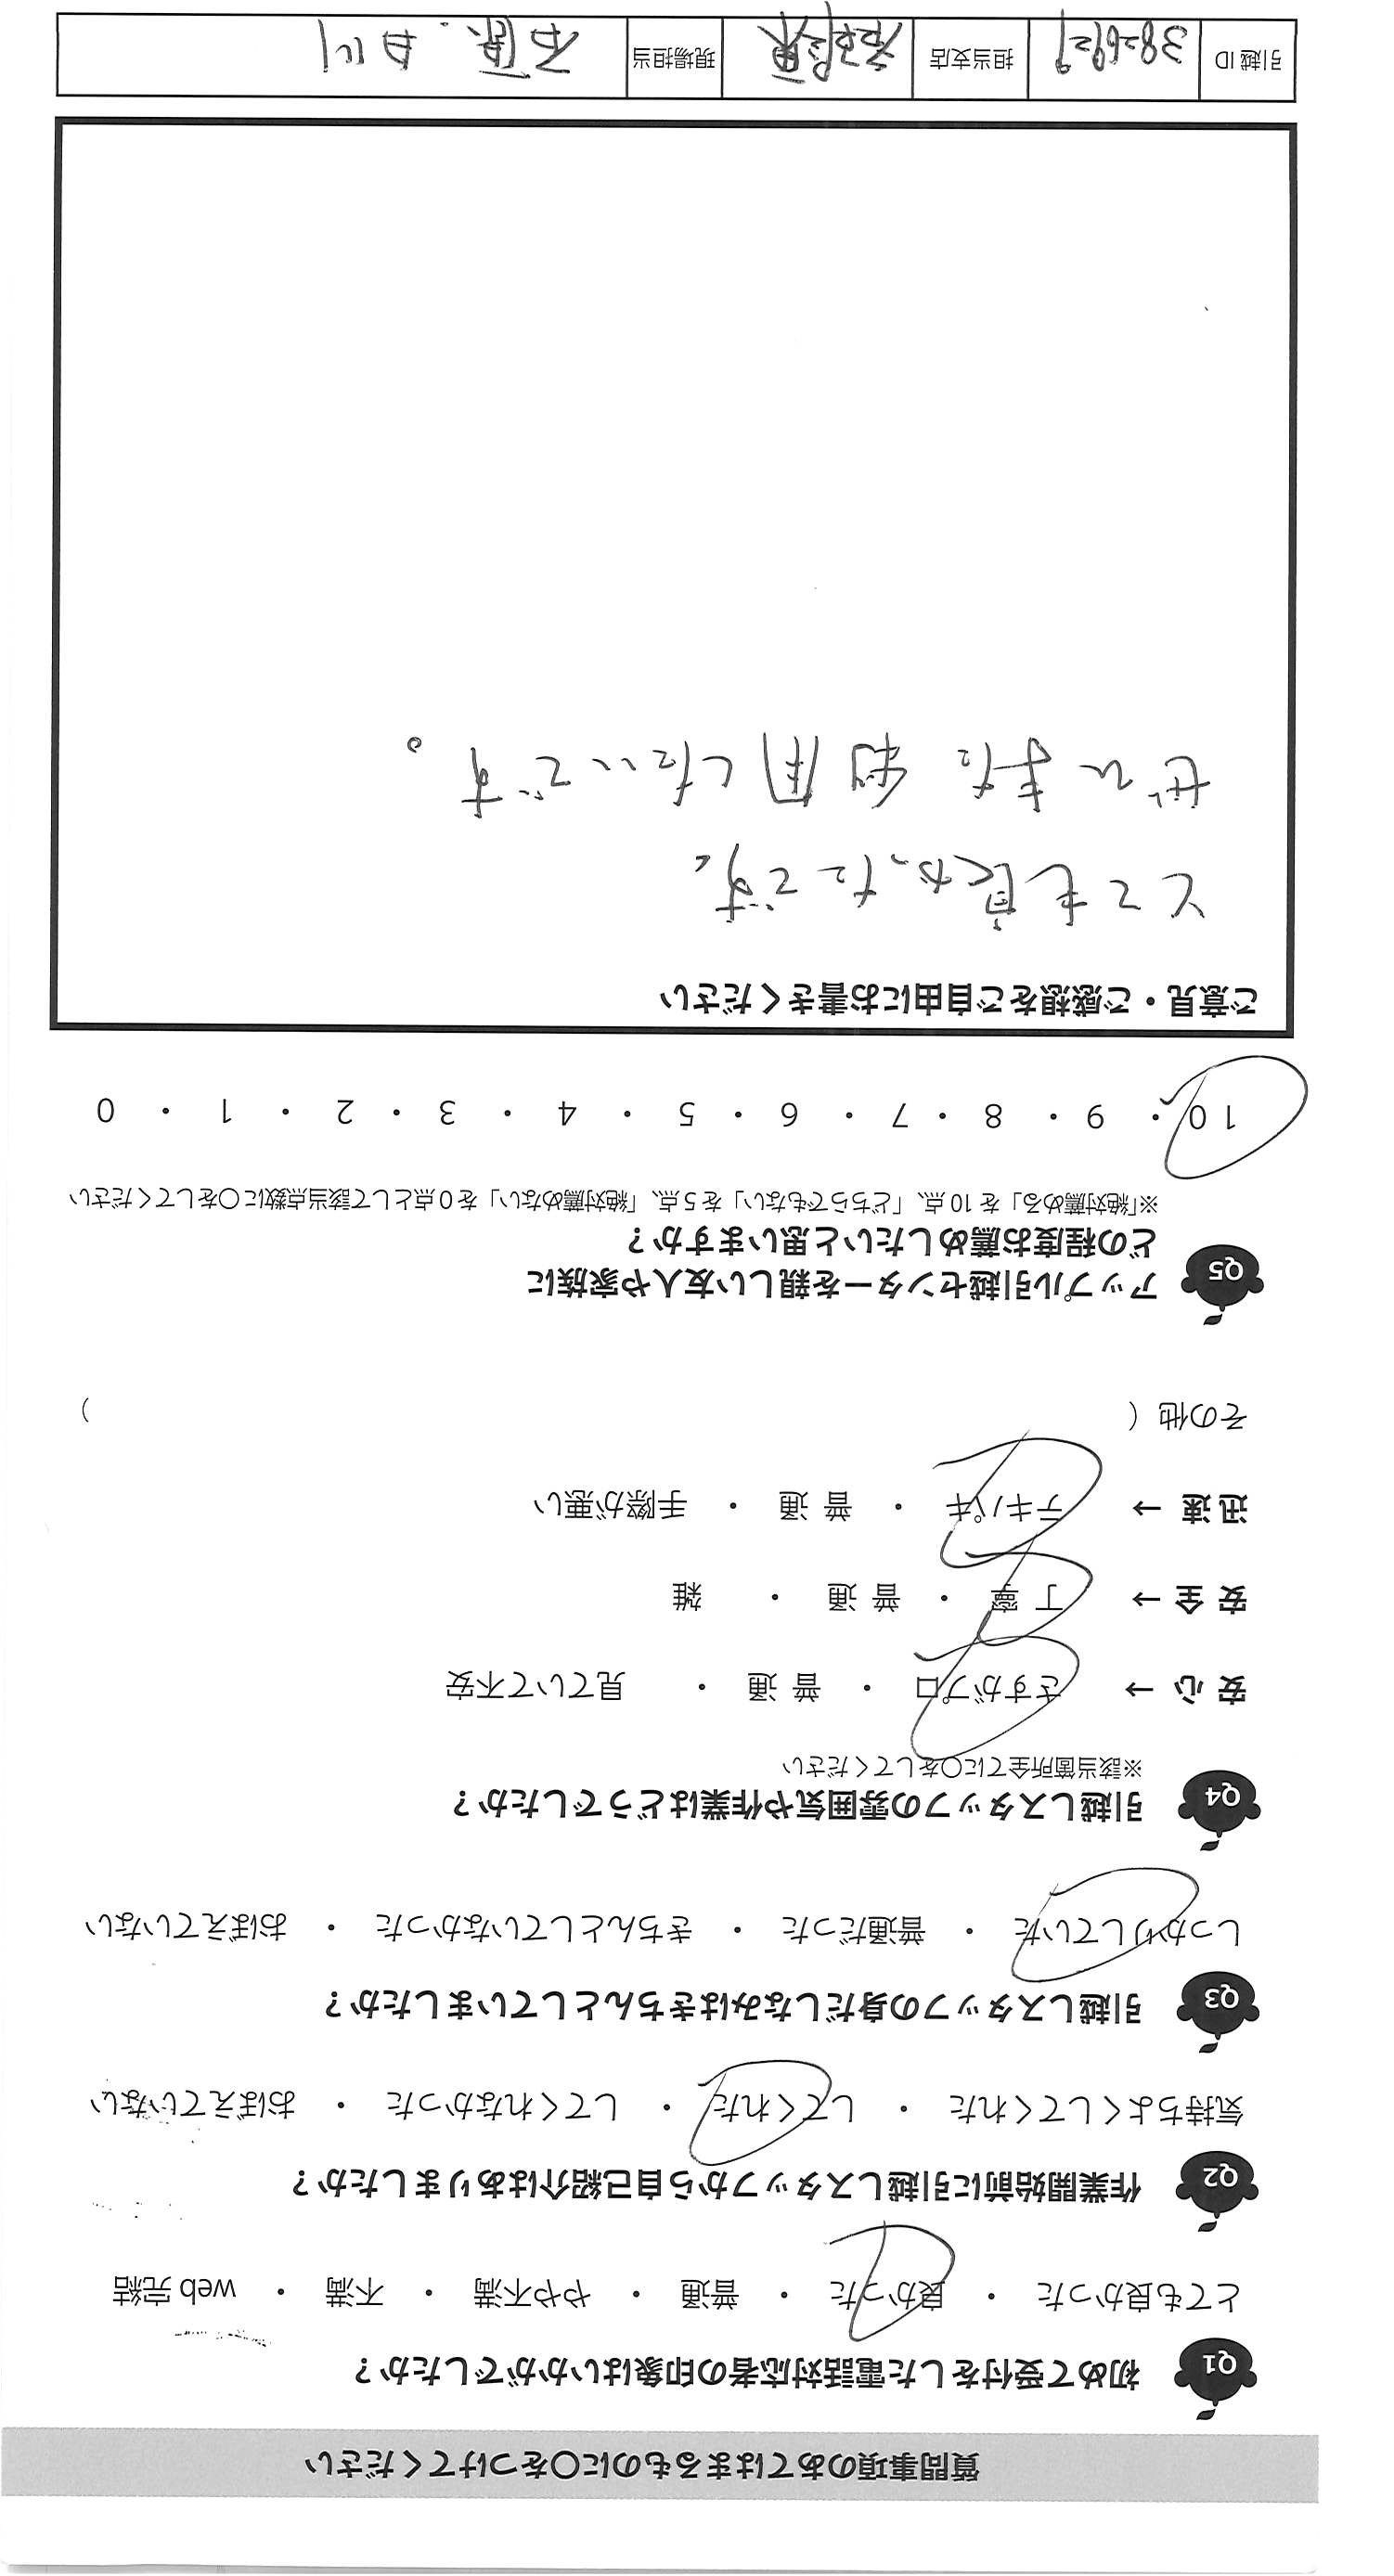 質問事項のあてはまるものに〇をつけてください
Q1 初めて受付をした電話対応者の印象はいかがでしたか？
とても良かった ・ 良かった ・ 普通 ・ やや不満 ・ 不満 ・ web 完結
Q2 作業開始前に引越しスタッフから自己紹介はありましたか？
気持ちよくしてくれた ・ してくれた ・ してくれなかった ・ おぼえていない
Q3 引越しスタッフの身だしなみはきちんとしていましたか？
しっかりしていた ・ 普通だった ・ きちんとしていなかった ・ おぼえていない
Q4 引越しスタッフの雰囲気や作業はどうでしたか？
※該当箇所全てに〇をしてください
安 心 → さすがプロ ・ 普 通 ・ 見ていて不安
安 全 → 丁 寧 ・ 普 通 ・ 雑
迅 速 → テキパキ ・ 普 通 ・ 手際が悪い
その他（ ）
Q5 アップル引越センターを親しい友人や家族に
どの程度お薦めしたいと思いますか？
※「絶対薦める」を 10 点、「どちらでもない」を 5 点、「絶対薦めない」を 0 点として該当点数に〇をしてください
10 ・ 9 ・ 8 ・ 7 ・ 6 ・ 5 ・ 4 ・ 3 ・ 2 ・ 1 ・ 0
ご意見・ご感想をご自由にお書きください
とても良かったです。
ぜひまた利用したいです。
引越 ID 担当支店 現場担当 白川